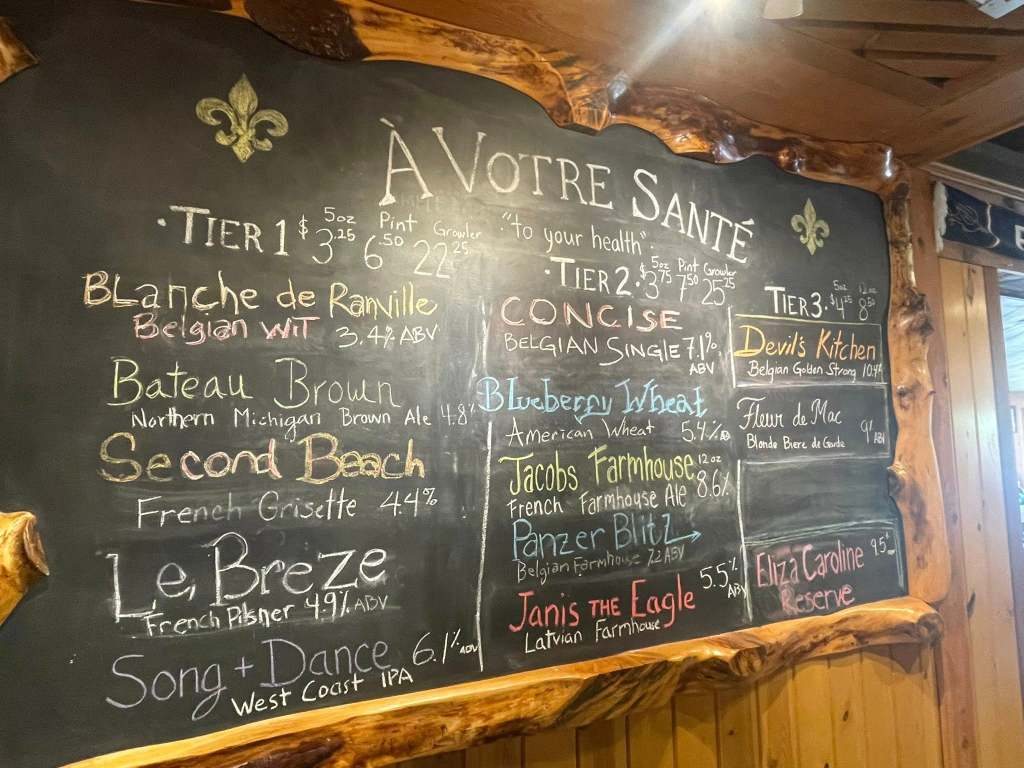 À VOTRE SANTÉ
"to your health"
·TIER 1 $ 5oz 3.25 Pint 6.50 Growler 22.25
BLanche de Ranville
Belgian WiT 3.4% ABV
Bateau Brown
Northern Michigan Brown Ale 4.8%
Second Beach
French Grisette 4.4%
Le Breze
French Pilsner 4.9% ABV
Song + Dance 6.1% ABV
West Coast IPA
·TIER 2· 5oz $3.75 Pint 7.50 Growler 25.75
CONCISE
BELGIAN SINGLE 7.1%
ABV
Blueberry Wheat
American Wheat 5.4%
Jacobs Farmhouse 12 oz
French Farmhouse Ale 8.6%
Panzer Blitz
Belgian Farmhouse 7.2 ABV
Janis THE Eagle 5.5%
ABV
Latvian Farmhouse
TIER 3· 5oz $4.25 12 oz 8.50
Devil's Kitchen
Belgian Golden Strong 10.4%
Fleur de Mac
Blonde Biere de Garde 9% ABV
Eliza Caroline 9.5%
Reserve